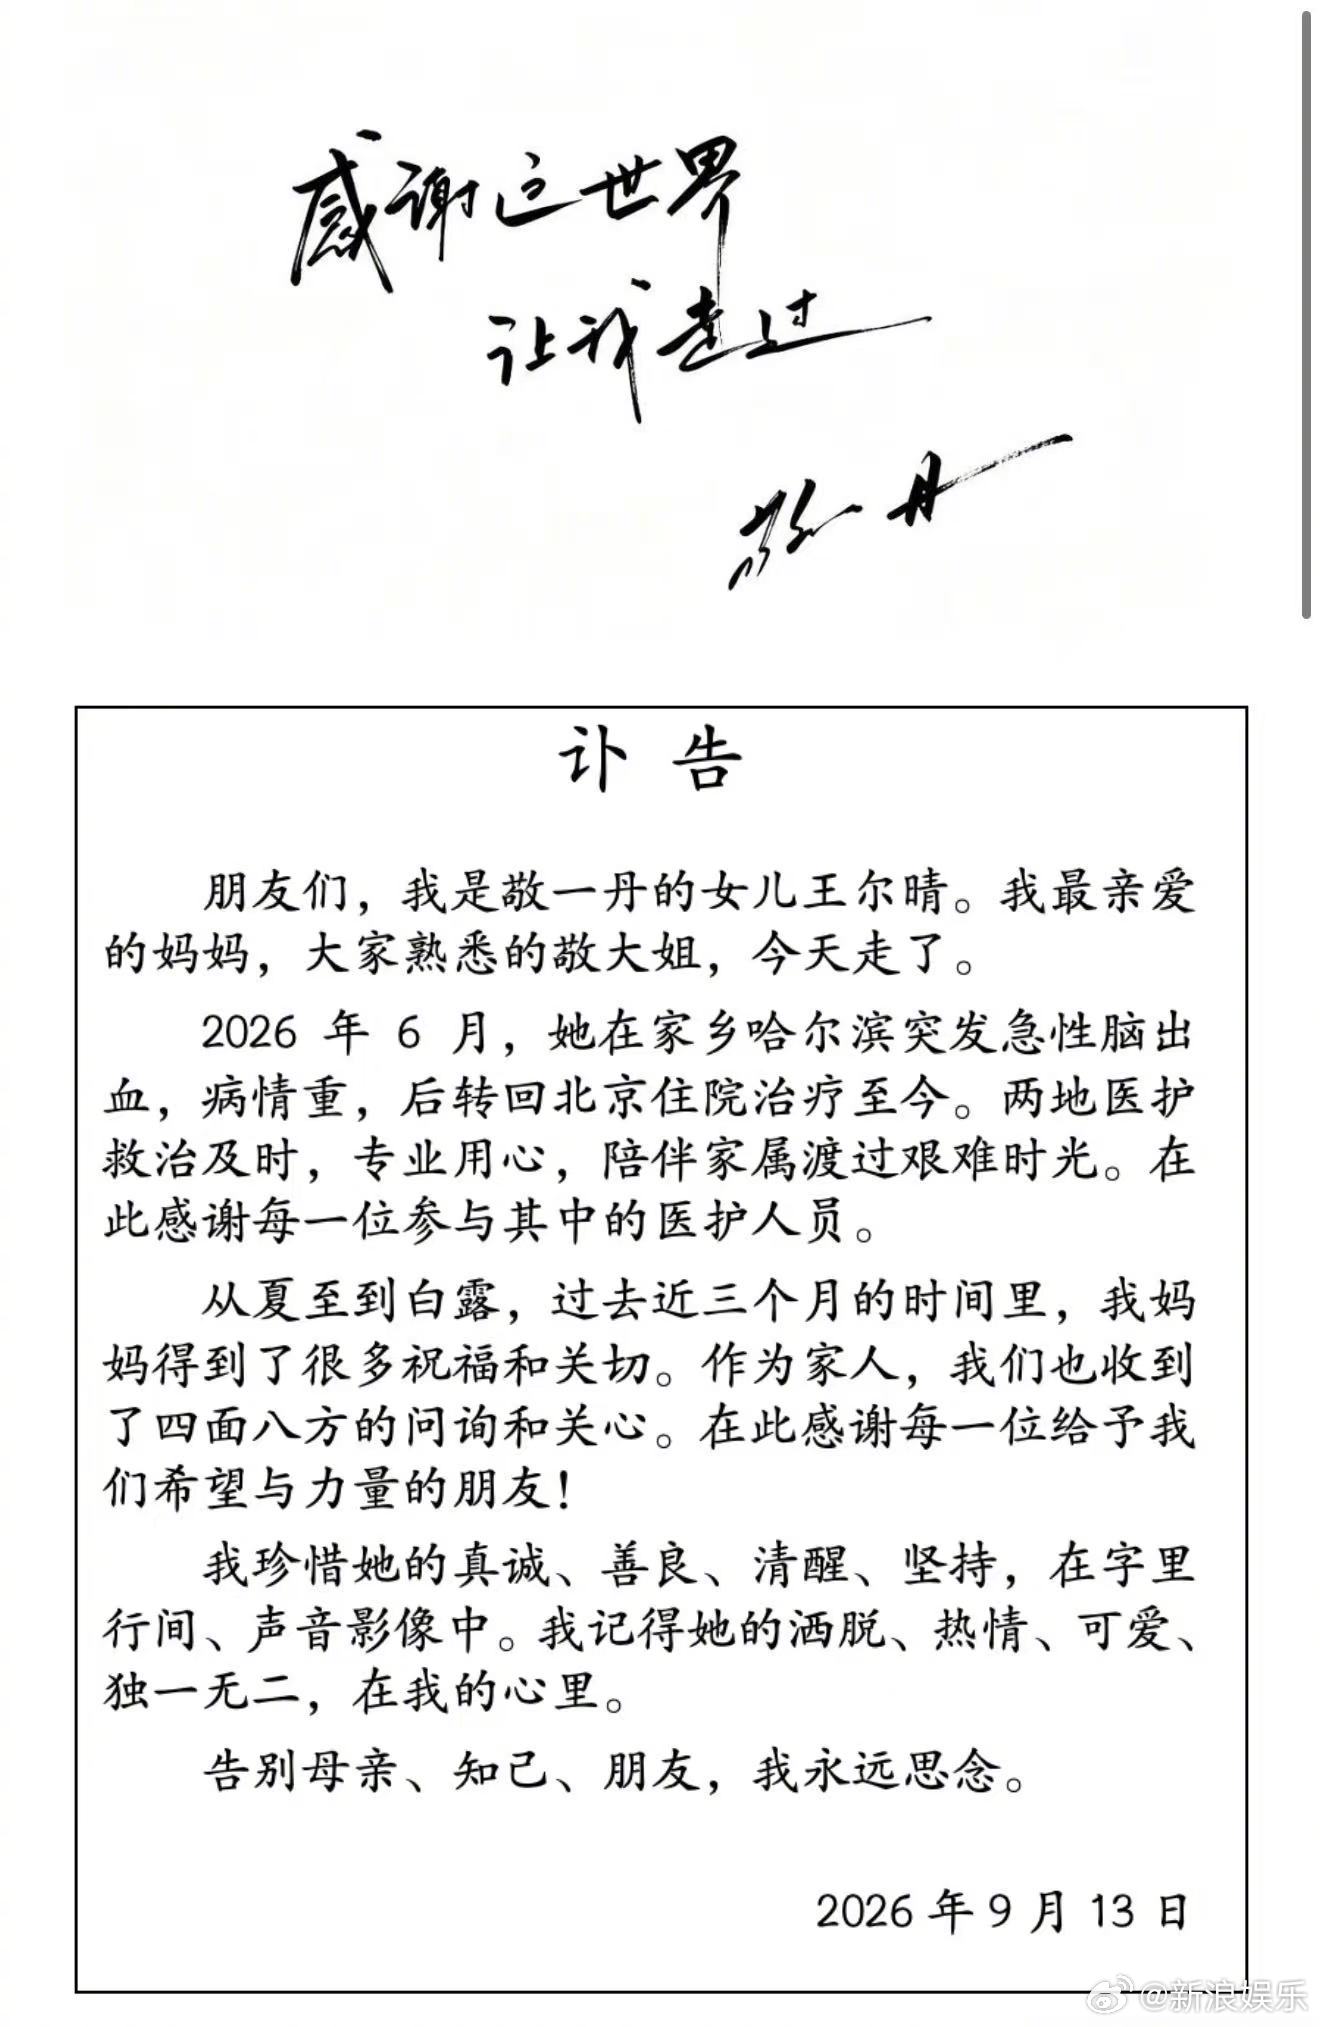 感谢这世界
让我走过
敬一丹
讣告
朋友们，我是敬一丹的女儿王尔晴。我最亲爱
的妈妈，大家熟悉的敬大姐，今天走了。
2026 年 6 月，她在家乡哈尔滨突发急性脑出
血，病情重，后转回北京住院治疗至今。两地医护
救治及时，专业用心，陪伴家属渡过艰难时光。在
此感谢每一位参与其中的医护人员。
从夏至到白露，过去近三个月的时间里，我妈
妈得到了很多祝福和关切。作为家人，我们也收到
了四面八方的问询和关心。在此感谢每一位给予我
们希望与力量的朋友！
我珍惜她的真诚、善良、清醒、坚持，在字里
行间、声音影像中。我记得她的洒脱、热情、可爱、
独一无二，在我的心里。
告别母亲、知己、朋友，我永远思念。
2026 年 9 月 13 日
@新浪娱乐